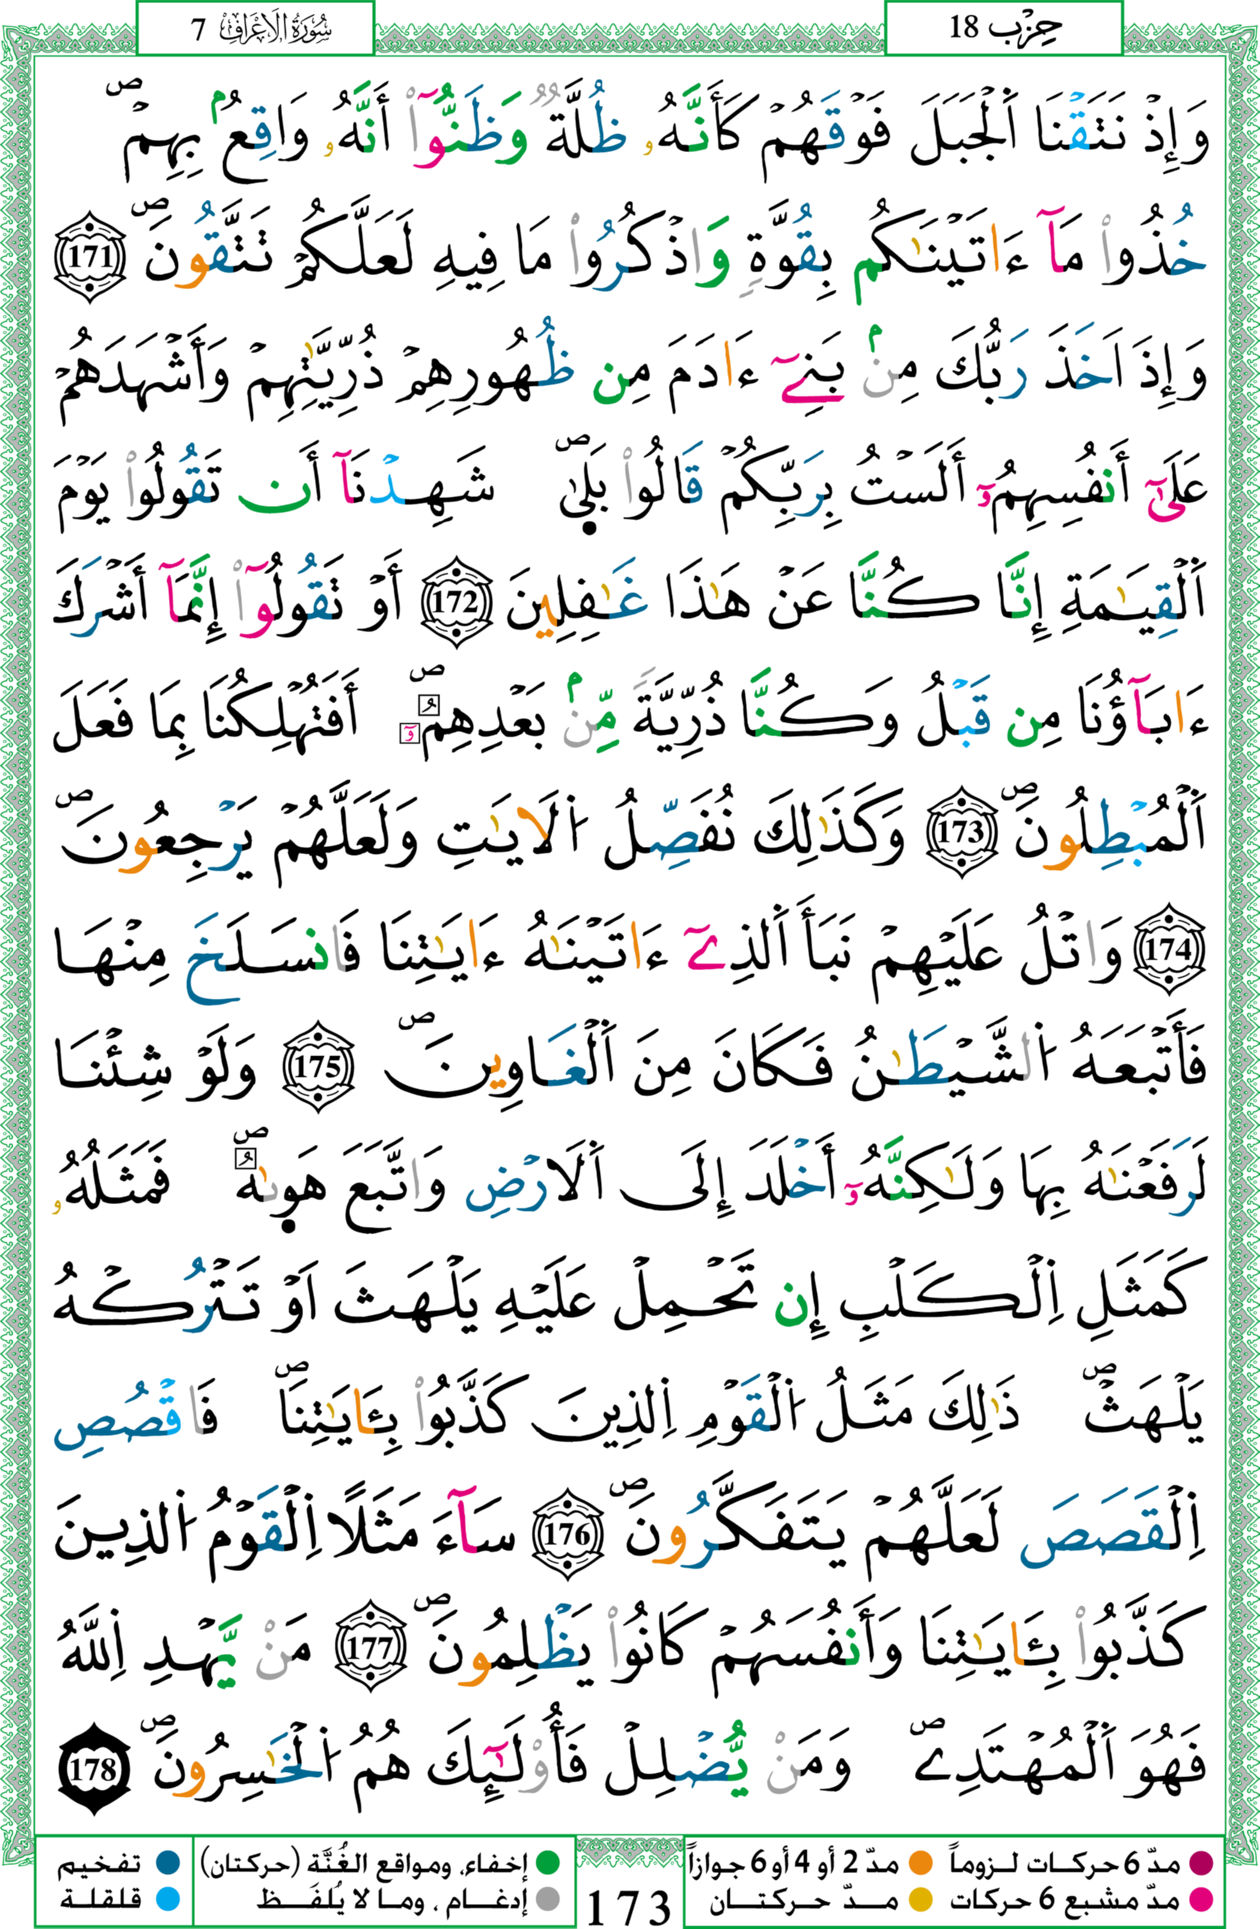 سُورَةُ الْأَعْرَافِ 7
حِزْب 18
وَإِذْ نَتَقْنَا اَ۬لْجَبَلَ فَوْقَهُمْ كَأَنَّهُۥ ظُلَّةٞ وَظَنُّوٓاْ أَنَّهُۥ وَاقِعُۢ بِهِمْۖ
خُذُواْ مَآ ءَاتَيْنَٰكُم بِقُوَّةٖ وَاذْكُرُواْ مَا فِيهِ لَعَلَّكُمْ تَتَّقُونَۖ 171
وَإِذَ اَخَذَ رَبُّكَ مِنۢ بَنِےٓ ءَادَمَ مِن ظُهُورِهِمْ ذُرِّيَّٰتِهِمْ وَأَشْهَدَهُمْ
عَلَىٰٓ أَنفُسِهِمُۥٓ أَلَسْتُ بِرَبِّكُمْ قَالُواْ بَلَىٰۖ شَهِدْنَآ أَن تَقُولُواْ يَوْمَ
اَ۬لْقِيَٰمَةِ إِنَّا كُنَّا عَنْ هَٰذَا غَٰفِلِينَ 172 أَوْ تَقُولُوٓاْ إِنَّمَآ أَشْرَكَ
ءَابَآؤُنَا مِن قَبْلُ وَكُنَّا ذُرِّيَّةٗ مِّنۢ بَعْدِهِمُۥٓۖ أَفَتُهْلِكُنَا بِمَا فَعَلَ
اَ۬لْمُبْطِلُونَۖ 173 وَكَذَٰلِكَ نُفَصِّلُ اُ۬لَايَٰتِ وَلَعَلَّهُمْ يَرْجِعُونَۖ
174 وَاتْلُ عَلَيْهِمْ نَبَأَ اَ۬لذِےٓ ءَاتَيْنَٰهُ ءَايَٰتِنَا فَانسَلَخَ مِنْهَا
فَأَتْبَعَهُ اُ۬لشَّيْطَٰنُ فَكَانَ مِنَ اَ۬لْغَاوِينَۖ 175 وَلَوْ شِئْنَا
لَرَفَعْنَٰهُ بِهَا وَلَٰكِنَّهُۥٓ أَخْلَدَ إِلَى اَ۬لَارْضِ وَاتَّبَعَ هَوٜىٰهُۖ فَمَثَلُهُۥ
كَمَثَلِ اِ۬لْكَلْبِ إِن تَحْمِلْ عَلَيْهِ يَلْهَثَ اَوْ تَتْرُكْهُ
يَلْهَثْۖ ذَٰلِكَ مَثَلُ اُ۬لْقَوْمِ اِ۬لذِينَ كَذَّبُواْ بِـَٔايَٰتِنَاۖ فَاقْصُصِ
اِ۬لْقَصَصَ لَعَلَّهُمْ يَتَفَكَّرُونَۖ 176 سَآءَ مَثَلًا اِ۬لْقَوْمُ اُ۬لذِينَ
كَذَّبُواْ بِـَٔايَٰتِنَا وَأَنفُسَهُمْ كَانُواْ يَظْلِمُونَۖ 177 مَنْ يَّهْدِ اِ۬للَّهُ
فَهُوَ اَ۬لْمُهْتَدِےۖ وَمَنْ يُّضْلِلْ فَأُوْلَٰٓئِكَ هُمُ اُ۬لْخَٰسِرُونَۖ 178
مدّ 6 حركات لـزوماً مدّ 2 أو 4 أو 6 جوازاً
مدّ مشبع 6 حركات مـدّ حـركتـان
173
إخفاء، ومواقع الغُنَّة (حركتان)
إدغـام ، ومـا لا يُلفَـظ
تفخيم
قلقلة